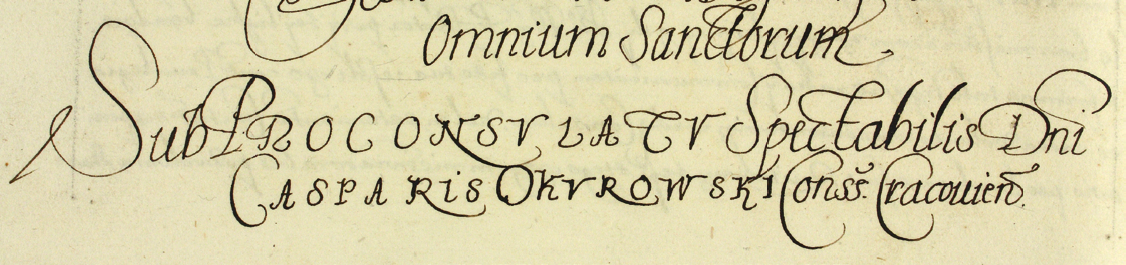 Omnium Sanctorum.
Sub PROCONSVLATV Spectabilis Dni
CASPARis OKVROWSKI Conss. Cracouien.